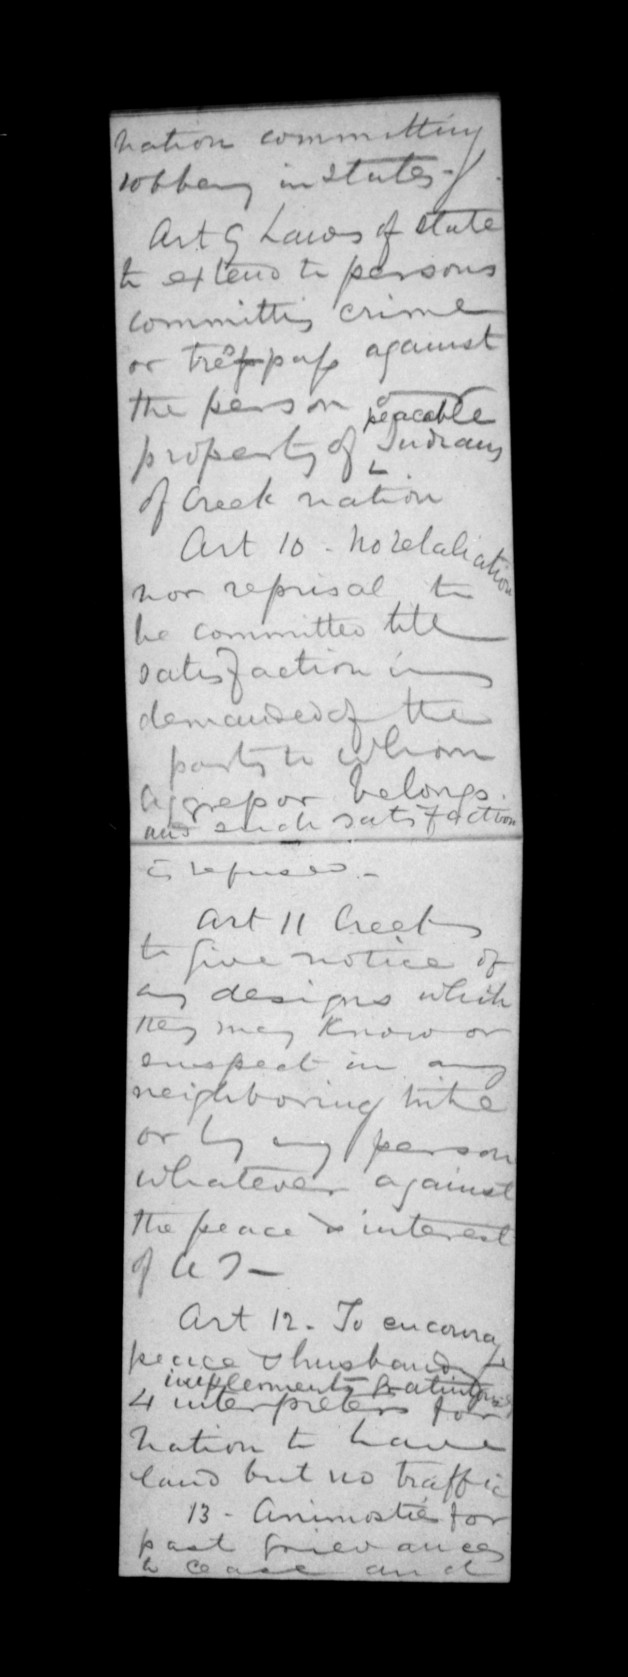 nation committing
robbery in states -
Art 9 Laws of state
to extend to persons
committing crime
or trespass against
the person or
peacable
property of Indians
of Creek nation
Art 10 - no retaliation
nor reprisal to
be committed till
satisfaction is
demanded of the
party to whom
aggressor belongs.
and such satisfaction
is refused -
Art 11 Creeks
to give notice of
any designs which
they may know or
suspect in any
neighboring tribe
or by any person
whatever against
the peace & interest
of U S -
Art 12 - To encourage
peace & husbandry
implements gratuitous
4 interpreters for
nation to have
land but no traffic
13 - Animosties for
past grievances
to cease and